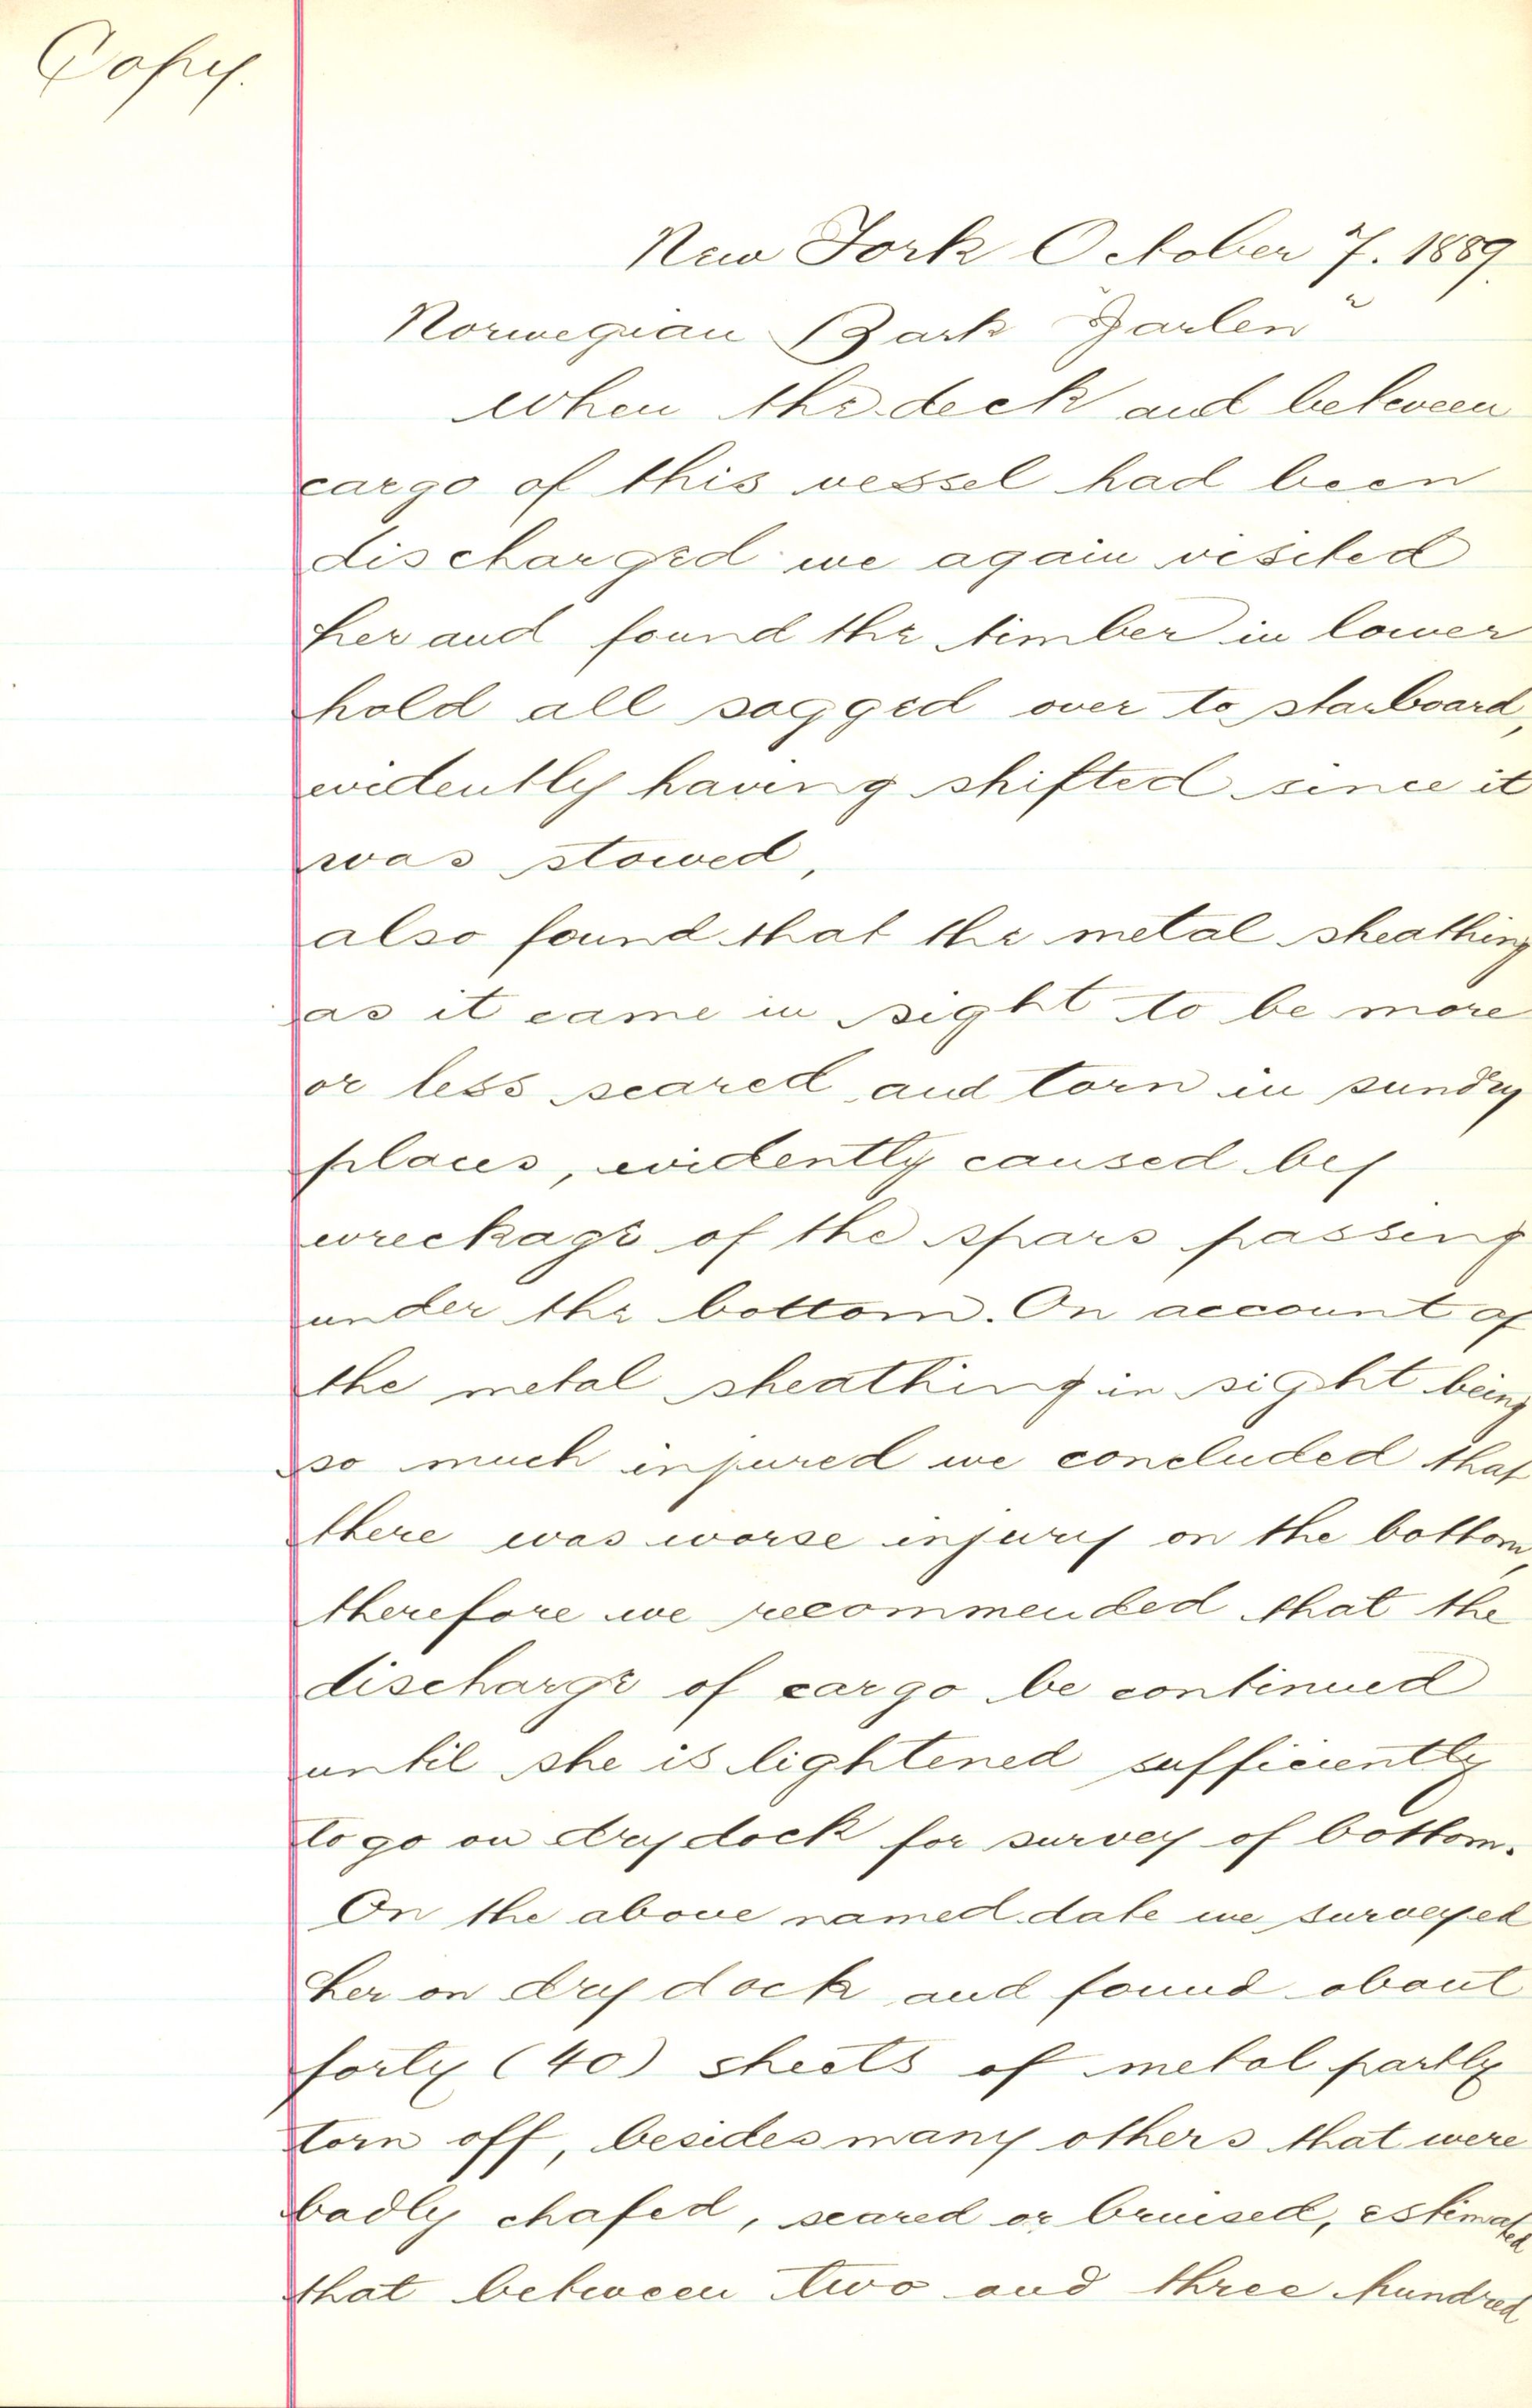 Copy.
New York October 7. 1889.
Norwegian Bark "Jarlen"
When the deck and between
cargo of this vessel had been
discharged we again visited
her and found the timber in lower
hold all sagged over to starboard,
evidently having shifted since it
was stowed,
also found that the metal sheathing
as it came in sight to be more
or less scared and torn in sundry
places, evidently caused by
wreckage of the spars passing
under the bottom. On account of
the metal sheathing in sight being
so much injured we concluded that
there was worse injury on the bottom,
therefore we recommended that the
discharge of cargo be continued
until she is lightened sufficiently
to go on dry dock for survey of bottom.
On the above named date we surveyed
her on dry dock and found about
forty (40) sheets of metal partly
torn off, besides many others that were
badly chafed, scared or bruised, estimated
that between two and three hundred